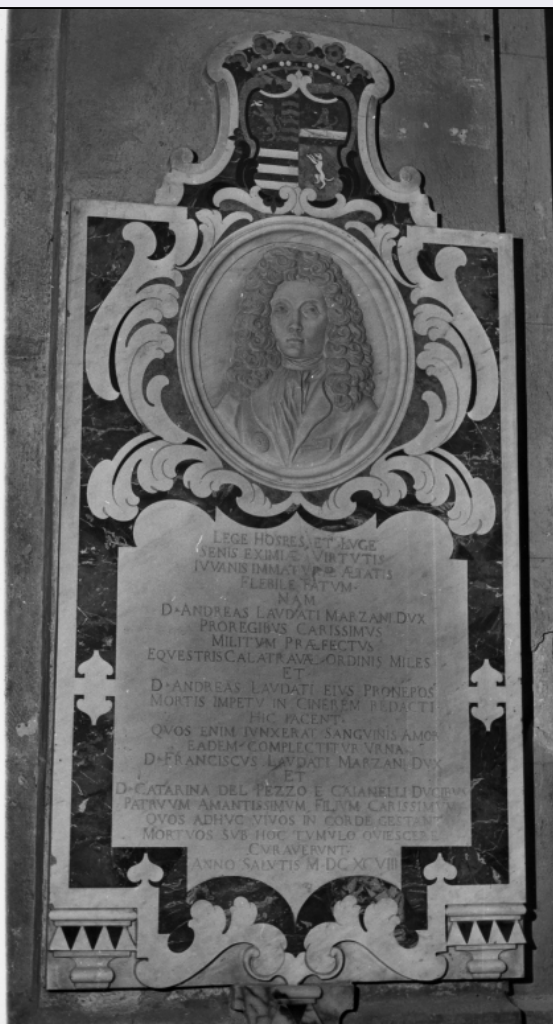 LEGE HOSPES, ET LUGE
SENIS EXIMIÆ VIRTVTIS
IVVANIS IMMATVRÆ ÆTATIS
FLEBILE FATVM·
NAM
D·ANDREAS LAVDATI MARZANI DVX
PROREGIBVS CARISSIMVS
MILITVM PRÆFECTVS
EQVESTRIS CALATRAVÆ ORDINIS MILES
ET
D·ANDREAS LAVDATI EIVS PRONEPOS
MORTIS IMPETV IN CINEREM REDACTI
HIC IACENT·
QVOS ENIM IVNXERAT SANGVINIS AMOR
EADEM COMPLECTITVR VRNA·
D·FRANCISCVS LAVDATI MARZANI DVX
ET
D·CATARINA DEL PEZZO E CAIANELLI DVCIBVS
PATRVVM AMANTISSIMVM, FILIVM CARISSIMVM
QVOS ADHVC VIVOS IN CORDE GESTANT
MORTVOS SVB HOC TVMVLO QVIESCERE
CVRAVERVNT·
ANNO SALVTIS M·DCXCVIII